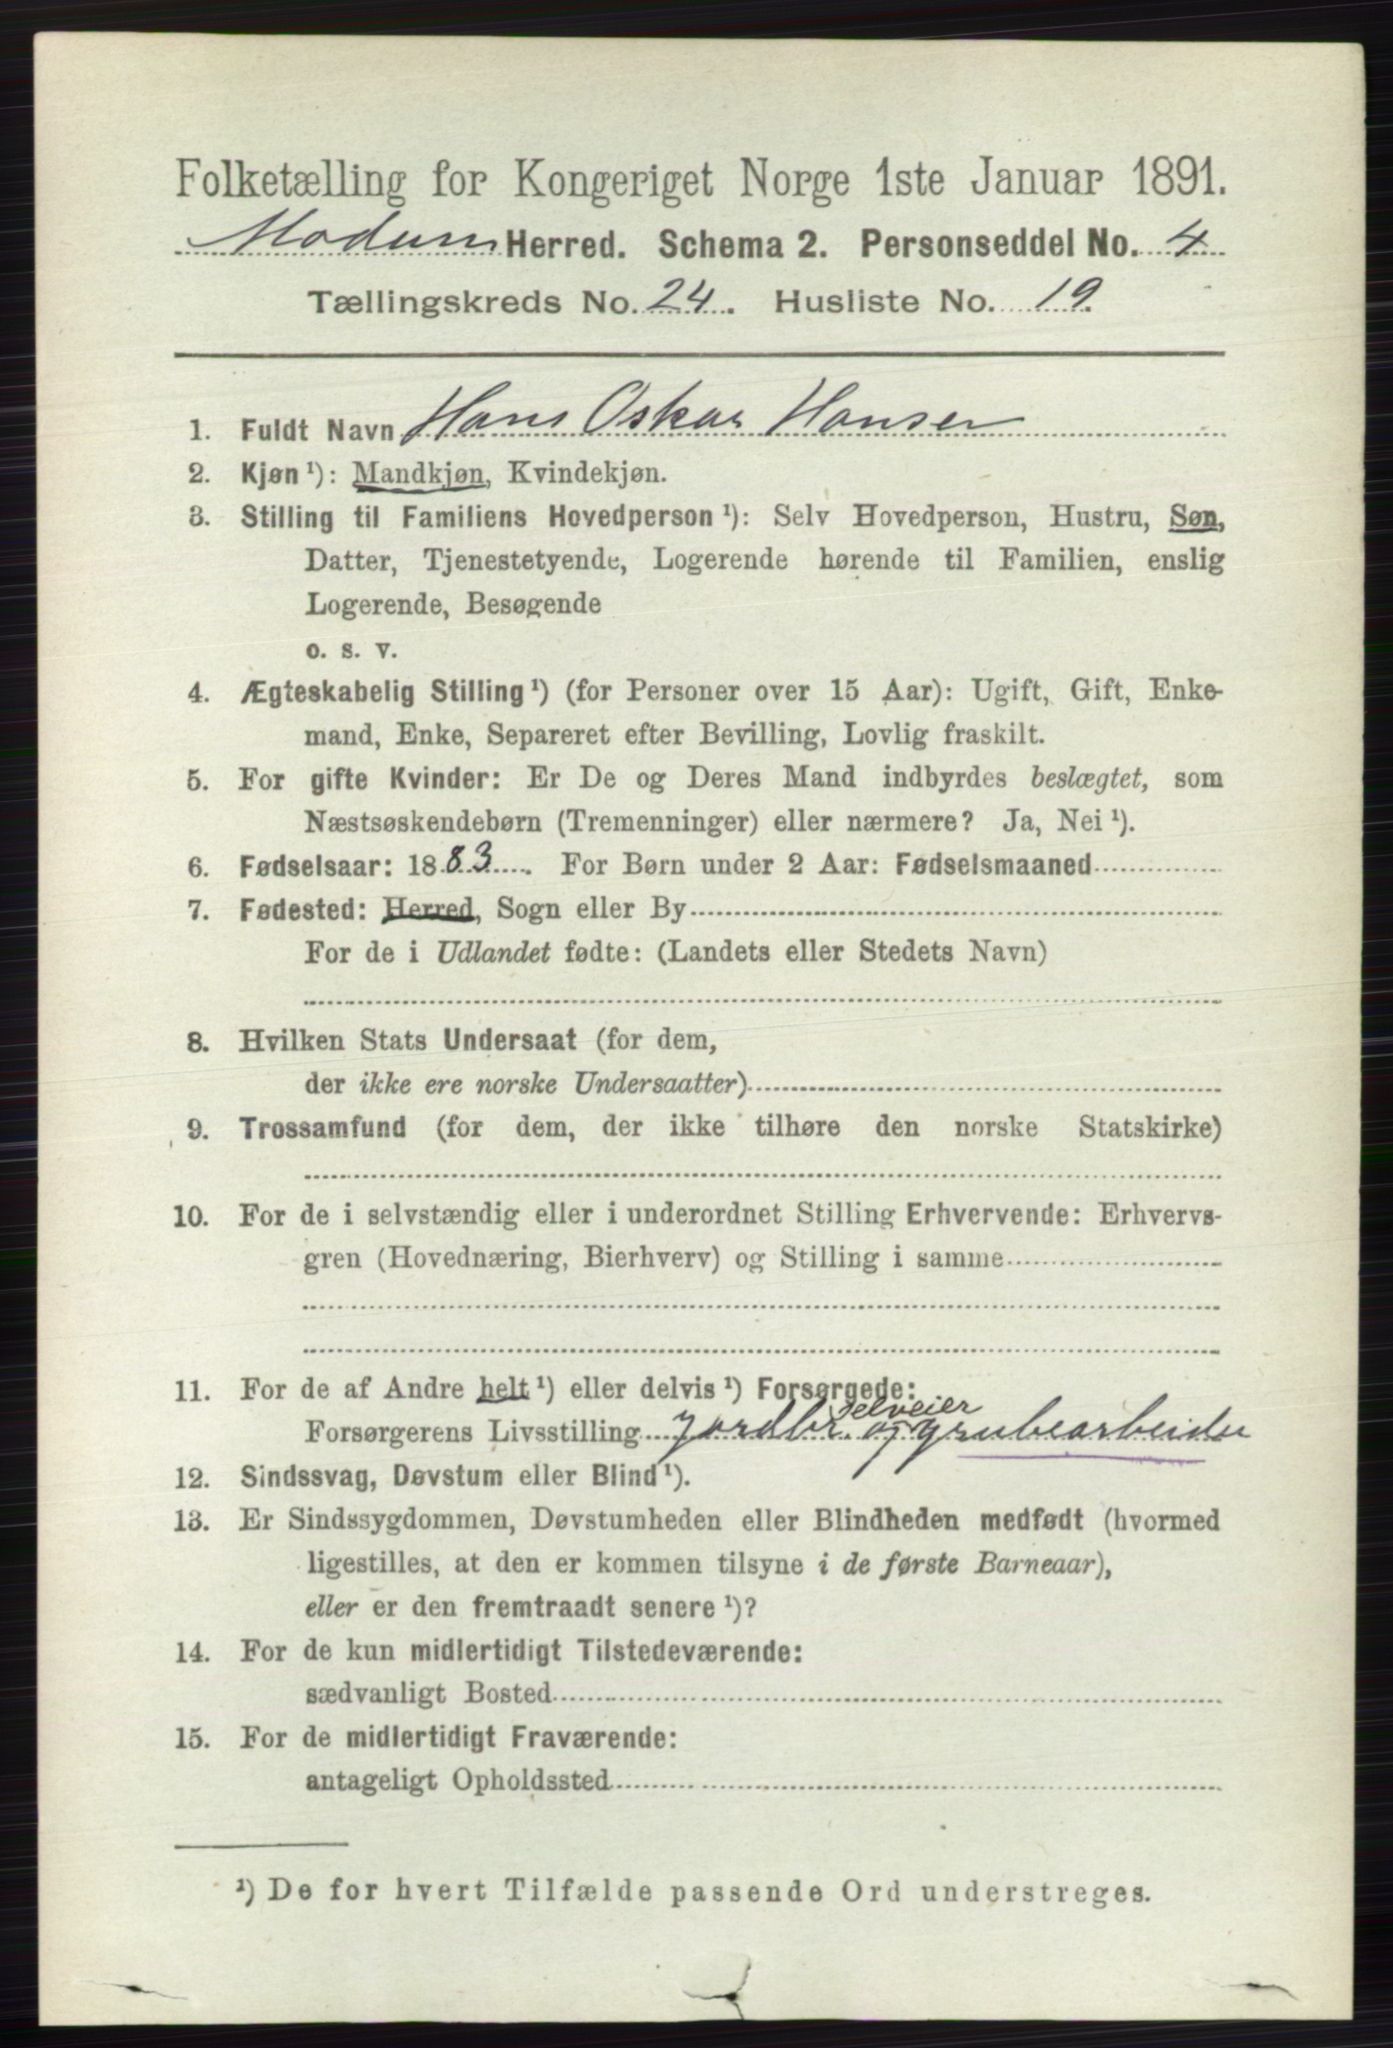 Folketælling for Kongeriget Norge 1ste Januar 1891.
Modum Herred. Schema 2. Personseddel No. 4
Tællingskreds No. 24. Husliste No. 19
1. Fuldt Navn Hans Oskar Hansen
2. Kjøn ¹): Mandkjøn, Kvindekjøn.
3. Stilling til Familiens Hovedperson ¹): Selv Hovedperson, Hustru, Søn,
Datter, Tjenestetyende, Logerende hørende til Familien, enslig
Logerende, Besøgende
o. s. v.
4. Ægteskabelig Stilling ¹) (for Personer over 15 Aar): Ugift, Gift, Enke-
mand, Enke, Separeret efter Bevilling, Lovlig fraskilt.
5. For gifte Kvinder: Er De og Deres Mand indbyrdes beslægtet, som
Næstsøskendebørn (Tremenninger) eller nærmere? Ja, Nei ¹).
6. Fødselsaar: 1883. For Børn under 2 Aar: Fødselsmaaned
7. Fødested: Herred, Sogn eller By
For de i Udlandet fødte: (Landets eller Stedets Navn)
8. Hvilken Stats Undersaat (for dem,
der ikke ere norske Undersaatter)
9. Trossamfund (for dem, der ikke tilhøre den norske Statskirke)
10. For de i selvstændig eller i underordnet Stilling Erhvervende: Erhvervs-
gren (Hovednæring, Bierhverv) og Stilling i samme
11. For de af Andre helt ¹) eller delvis ¹) Forsørgede:
Forsørgerens Livsstilling Jordbr. selveier og grubearbeider
12. Sindssvag, Døvstum eller Blind ¹).
13. Er Sindssygdommen, Døvstumheden eller Blindheden medfødt (hvormed
ligestilles, at den er kommen tilsyne i de første Barneaar),
eller er den fremtraadt senere ¹)?
14. For de kun midlertidigt Tilstedeværende:
sædvanligt Bosted
15. For de midlertidigt Fraværende:
antageligt Opholdssted
¹) De for hvert Tilfælde passende Ord understreges.